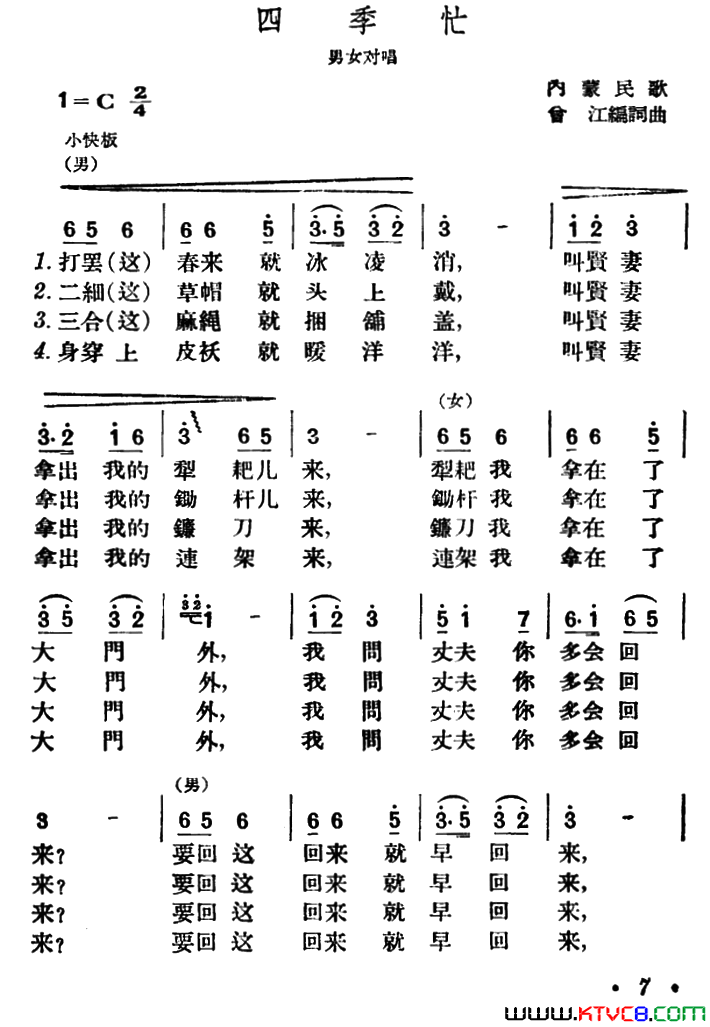 四季忙
男女对唱
1=C 2/4
内蒙民歌
曾江編詞曲
小快板
(男)
6 5 6 | 6 6 5 | 3·5 3 2 | 3 - | 1 2 3 |
1.打罢(这) 春来 就 冰凌 消, 叫賢妻
2.二細(这) 草帽 就 头上 戴, 叫賢妻
3.三合(这) 麻繩 就 捆舖 盖, 叫賢妻
4.身穿上 皮袄 就 暖洋 洋, 叫賢妻
(女)
3·2 1 6 | 3 6 5 | 3 - | 6 5 6 | 6 6 5 |
拿出 我的 犁 耙儿 来, 犁耙我 拿在 了
拿出 我的 鋤 杆儿 来, 鋤杆我 拿在 了
拿出 我的 鐮 刀 来, 鐮刀我 拿在 了
拿出 我的 連 架 来, 連架我 拿在 了
3 5 3 2 | 3 2 1 - | 1 2 3 | 5 1 7 | 6·1 6 5 |
大 門 外, 我 問 丈夫 你 多会 回
大 門 外, 我 問 丈夫 你 多会 回
大 門 外, 我 問 丈夫 你 多会 回
大 門 外, 我 問 丈夫 你 多会 回
(男)
3 - | 6 5 6 | 6 6 5 | 3·5 3 2 | 3 - |
来? 要回 这 回来 就 早 回 来,
来? 要回 这 回来 就 早 回 来,
来? 要回 这 回来 就 早 回 来,
来? 要回 这 回来 就 早 回 来,
· 7 ·
www.KTVC8.com